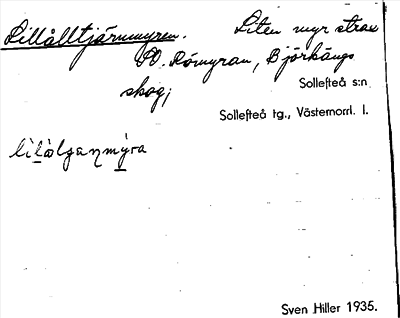 Lillålltjärnmyren. Liten myr strax
SV. Römyran, Björkängs
skog;
Sollefteå s:n
Sollefteå tg., Västernorrl. l.
Sven Hiller 1935.